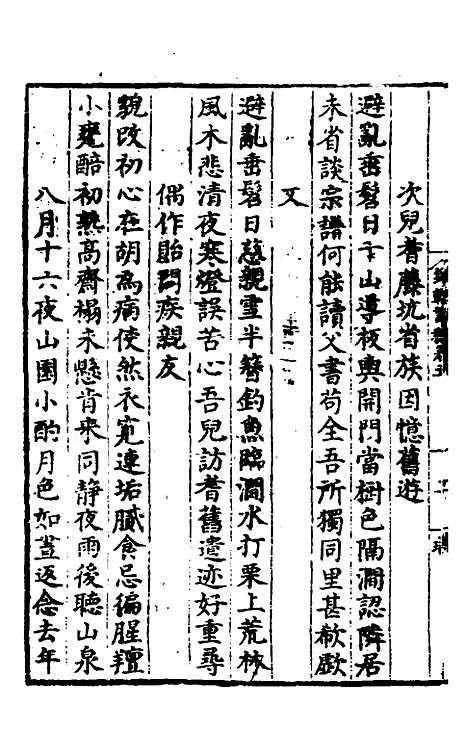 次兒耆藤坑省族因憶舊遊
避亂垂髫日千山導板輿開門當樹色隔澗認隣居
未省談宗譜何能讀父書苟全吾所獨同里甚欷歔
又
避亂垂髫日慈親雪半簪釣魚臨澗水打栗上荒林
風木悲清夜寒燈誤苦心吾兒訪耆舊遺迹好重尋
偶作貽問疾親友
貌改初心在胡為病使然衣寬連垢膩食忌徧腥羶
小甕醅初熟高齋榻未懸肯來同靜夜雨後聽山泉
八月十六夜山園小酌月色如晝返念去年